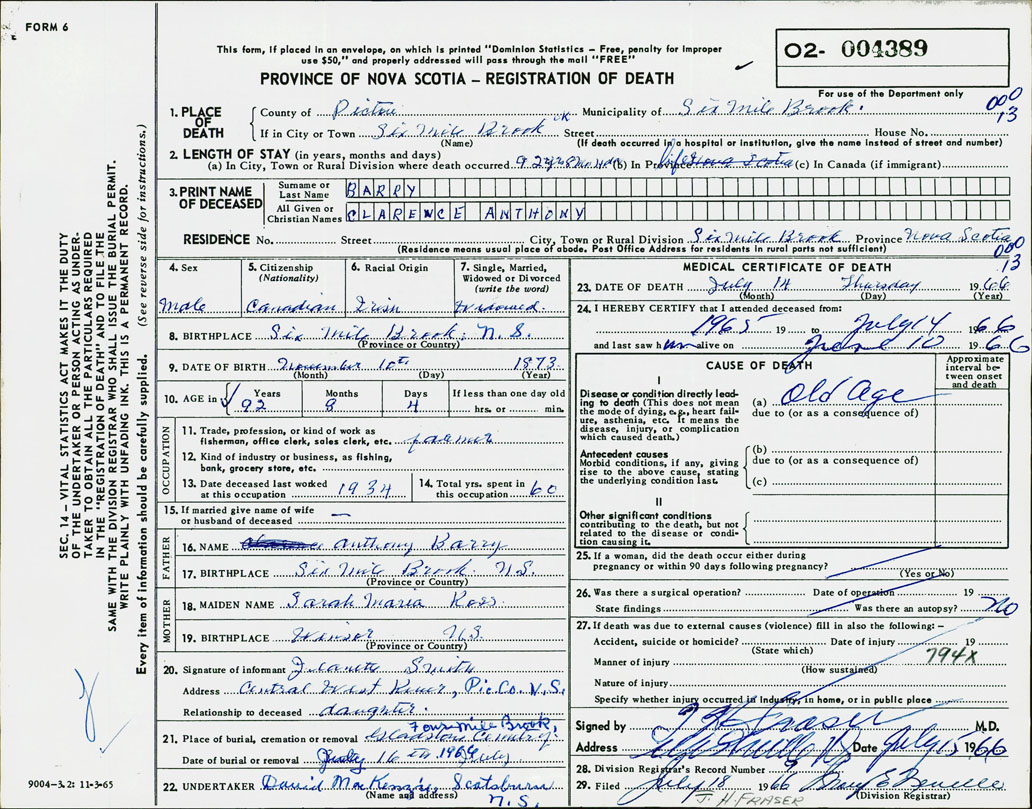 FORM 6
This form, if placed in an envelope, on which is printed "Dominion Statistics – Free, penalty for improper
use $50," and properly addressed will pass through the mail "FREE"
PROVINCE OF NOVA SCOTIA – REGISTRATION OF DEATH
02- 004389
For use of the Department only
000
13
1. PLACE OF DEATH
County of Pictou Municipality of Six Mile Brook.
If in City or Town Six Mile Brook Street House No.
(Name) (If death occurred in a hospital or institution, give the name instead of street and number)
2. LENGTH OF STAY (in years, months and days)
(a) In City, Town or Rural Division where death occurred 92 yrs 8 mo 4 d (b) In Province life Nova Scotia (c) In Canada (if immigrant)
3. PRINT NAME OF DECEASED
Surname or Last Name BARRY
All Given or Christian Names CLARENCE ANTHONY
RESIDENCE No. Street City, Town or Rural Division Six Mile Brook Province Nova Scotia
(Residence means usual place of abode. Post Office Address for residents in rural parts not sufficient)
000
13
4. Sex
Male
5. Citizenship (Nationality)
Canadian
6. Racial Origin
Irish
7. Single, Married, Widowed or Divorced (write the word)
Widowed
8. BIRTHPLACE Six Mile Brook, N.S.
(Province or Country)
9. DATE OF BIRTH November 10th 1873
(Month) (Day) (Year)
10. AGE in Years Months Days If less than one day old
92 8 4 hrs. or min.
OCCUPATION
11. Trade, profession, or kind of work as
fisherman, office clerk, sales clerk, etc. farmer
12. Kind of industry or business, as fishing,
bank, grocery store, etc.
13. Date deceased last worked
at this occupation 1934
14. Total yrs. spent in
this occupation 60
15. If married give name of wife
or husband of deceased —
FATHER
16. NAME Anthony Barry
17. BIRTHPLACE Six Mile Brook N.S.
(Province or Country)
MOTHER
18. MAIDEN NAME Sarah Maria Ross
19. BIRTHPLACE Windsor N.S.
(Province or Country)
20. Signature of informant Smith
Address Central West River, Pic. Co. N.S.
Relationship to deceased daughter.
Four Mile Brook,
21. Place of burial, cremation or removal Gladstone Cemetery
Date of burial or removal July 16th 1966
22. UNDERTAKER David MacKenzie Scotsburn
(Name and address) N.S.
MEDICAL CERTIFICATE OF DEATH
23. DATE OF DEATH July 14 Thursday 1966
(Month) (Day) (Year)
24. I HEREBY CERTIFY that I attended deceased from:
1965 19 to July 14 1966
and last saw him alive on June 10 1966
CAUSE OF DEATH
Approximate interval between onset and death
I
Disease or condition directly leading to death (This does not mean the mode of dying, e.g., heart failure, asthenia, etc. It means the disease, injury, or complication which caused death.)
(a) Old Age
due to (or as a consequence of)
Antecedent causes
Morbid conditions, if any, giving rise to the above cause, stating the underlying condition last.
(b)
due to (or as a consequence of)
(c)
II
Other significant conditions
contributing to the death, but not related to the disease or condition causing it.
25. If a woman, did the death occur either during
pregnancy or within 90 days following pregnancy?
(Yes or No)
26. Was there a surgical operation? Date of operation 19
State findings Was there an autopsy? No
27. If death was due to external causes (violence) fill in also the following: –
Accident, suicide or homicide? Date of injury 19
(State which)
794X
Manner of injury
(How sustained)
Nature of injury
Specify whether injury occurred in Industry, in home, or in public place
Signed by J H Fraser M.D.
Address Date July 15 1966
28. Division Registrar's Record Number
29. Filed July 18 1966
(Division Registrar)
J. H. FRASER
SEC. 14 – VITAL STATISTICS ACT MAKES IT THE DUTY
OF THE UNDERTAKER OR PERSON ACTING AS UNDER-
TAKER TO OBTAIN ALL THE PARTICULARS REQUIRED
IN THE "REGISTRATION OF DEATH" AND TO FILE THE
SAME WITH THE DIVISION REGISTRAR WHO SHALL ISSUE THE BURIAL PERMIT.
WRITE PLAINLY WITH UNFADING INK. THIS IS A PERMANENT RECORD.
Every item of information should be carefully supplied. (See reverse side for instructions.)
9004-3.2: 11-3-65